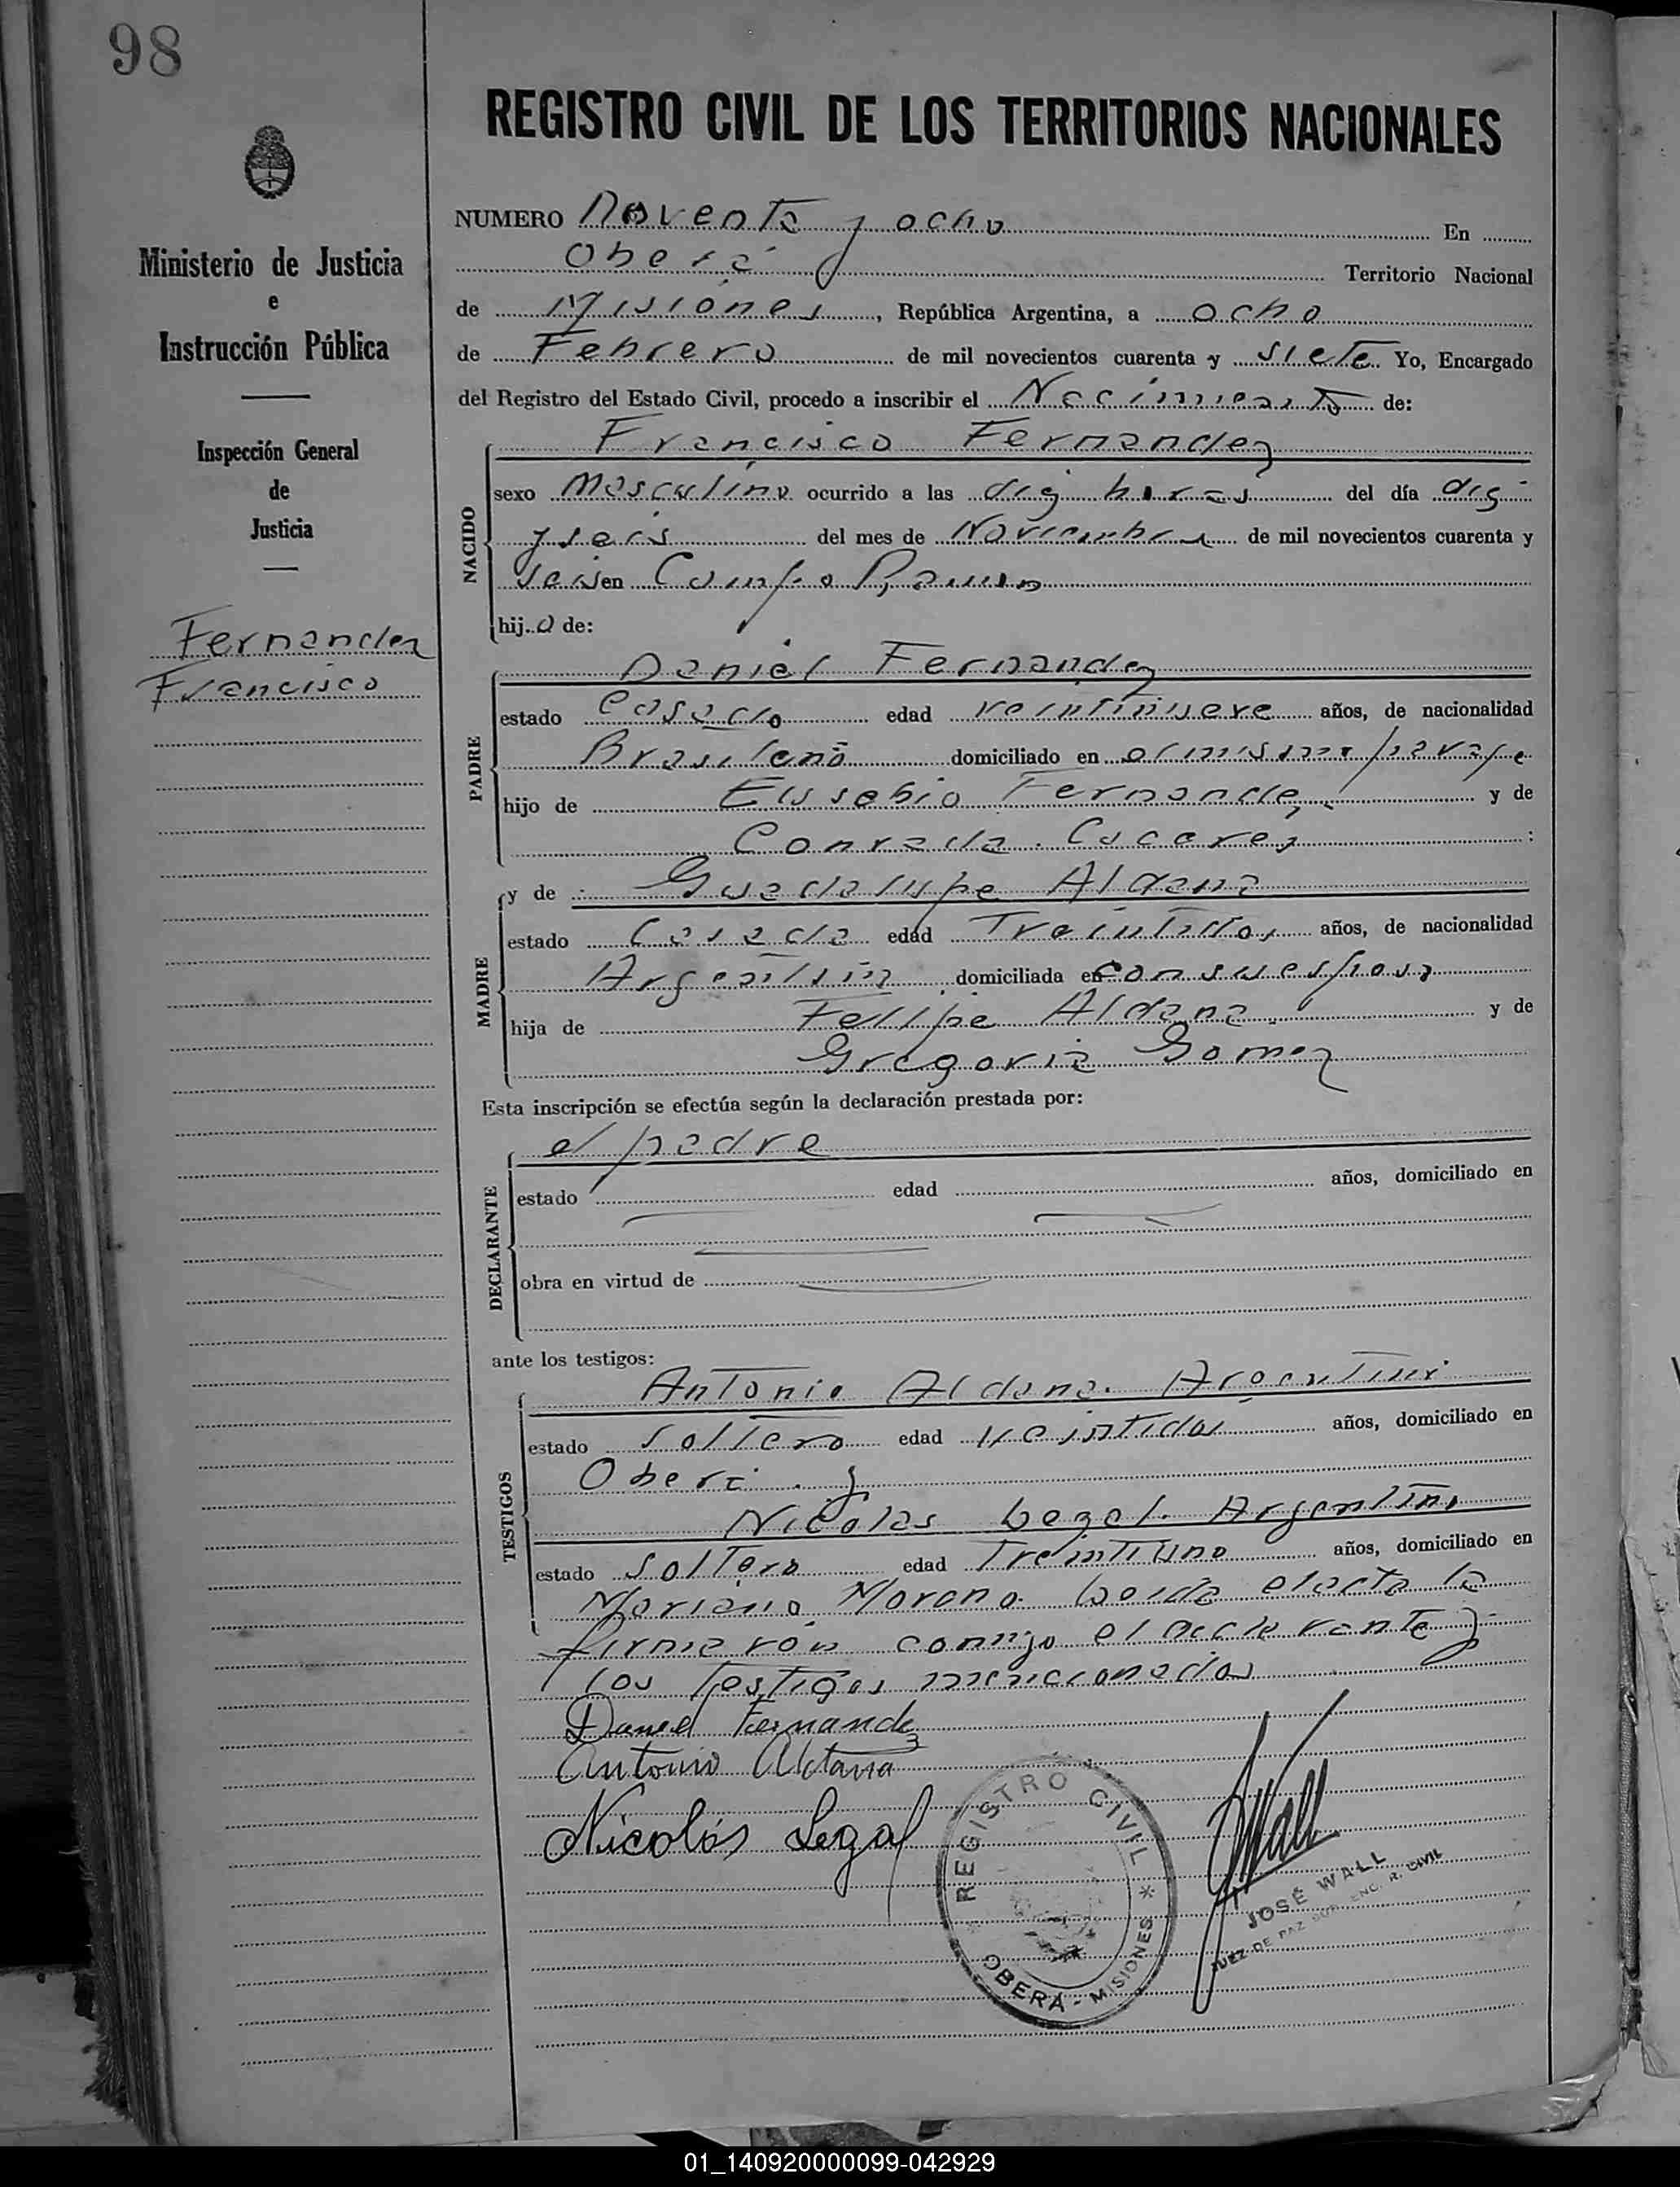 98
REGISTRO CIVIL DE LOS TERRITORIOS NACIONALES
Ministerio de Justicia
e
Instrucción Pública
Inspección General
de
Justicia
Fernandez
Francisco
NUMERO Noventa y ocho En
Oberá Territorio Nacional
de Misiones, República Argentina, a ocho
de Febrero de mil novecientos cuarenta y siete Yo, Encargado
del Registro del Estado Civil, procedo a inscribir el Nacimiento de:
NACIDO
Francisco Fernandez
sexo Masculino ocurrido a las diez horas del día diez
y seis del mes de Noviembre de mil novecientos cuarenta y
seis en Campo Ramon
hijo de:
PADRE
Daniel Fernandez
estado Casado edad veintinueve años, de nacionalidad
Brasileño domiciliado en el mismo paraje
hijo de Eusebio Fernandez y de
Conrada Caceres
MADRE
y de Guadalupe Aldana
estado Casada edad Treintidos años, de nacionalidad
Argentina domiciliada en con su esposo
hija de Fellipe Aldana y de
Gregoria Gomez
Esta inscripción se efectúa según la declaración prestada por:
DECLARANTE
el padre
estado edad años, domiciliado en
obra en virtud de
ante los testigos:
TESTIGOS
Antonio Aldana. Argentino
estado soltero edad veintidos años, domiciliado en
Oberá y
Nicolas Legal. Argentino
estado soltero edad Treintiuno años, domiciliado en
Mariano Moreno. Leida el acta la
firmaron conmigo el declarante y
los testigos mencionados
Daniel Fernandez
Antonio Aldana
Nicolás Legal
REGISTRO CIVIL
OBERÁ - MISIONES
JWall
JOSÉ WALL
JUEZ DE PAZ ENC. R. CIVIL
01_140920000099-042929